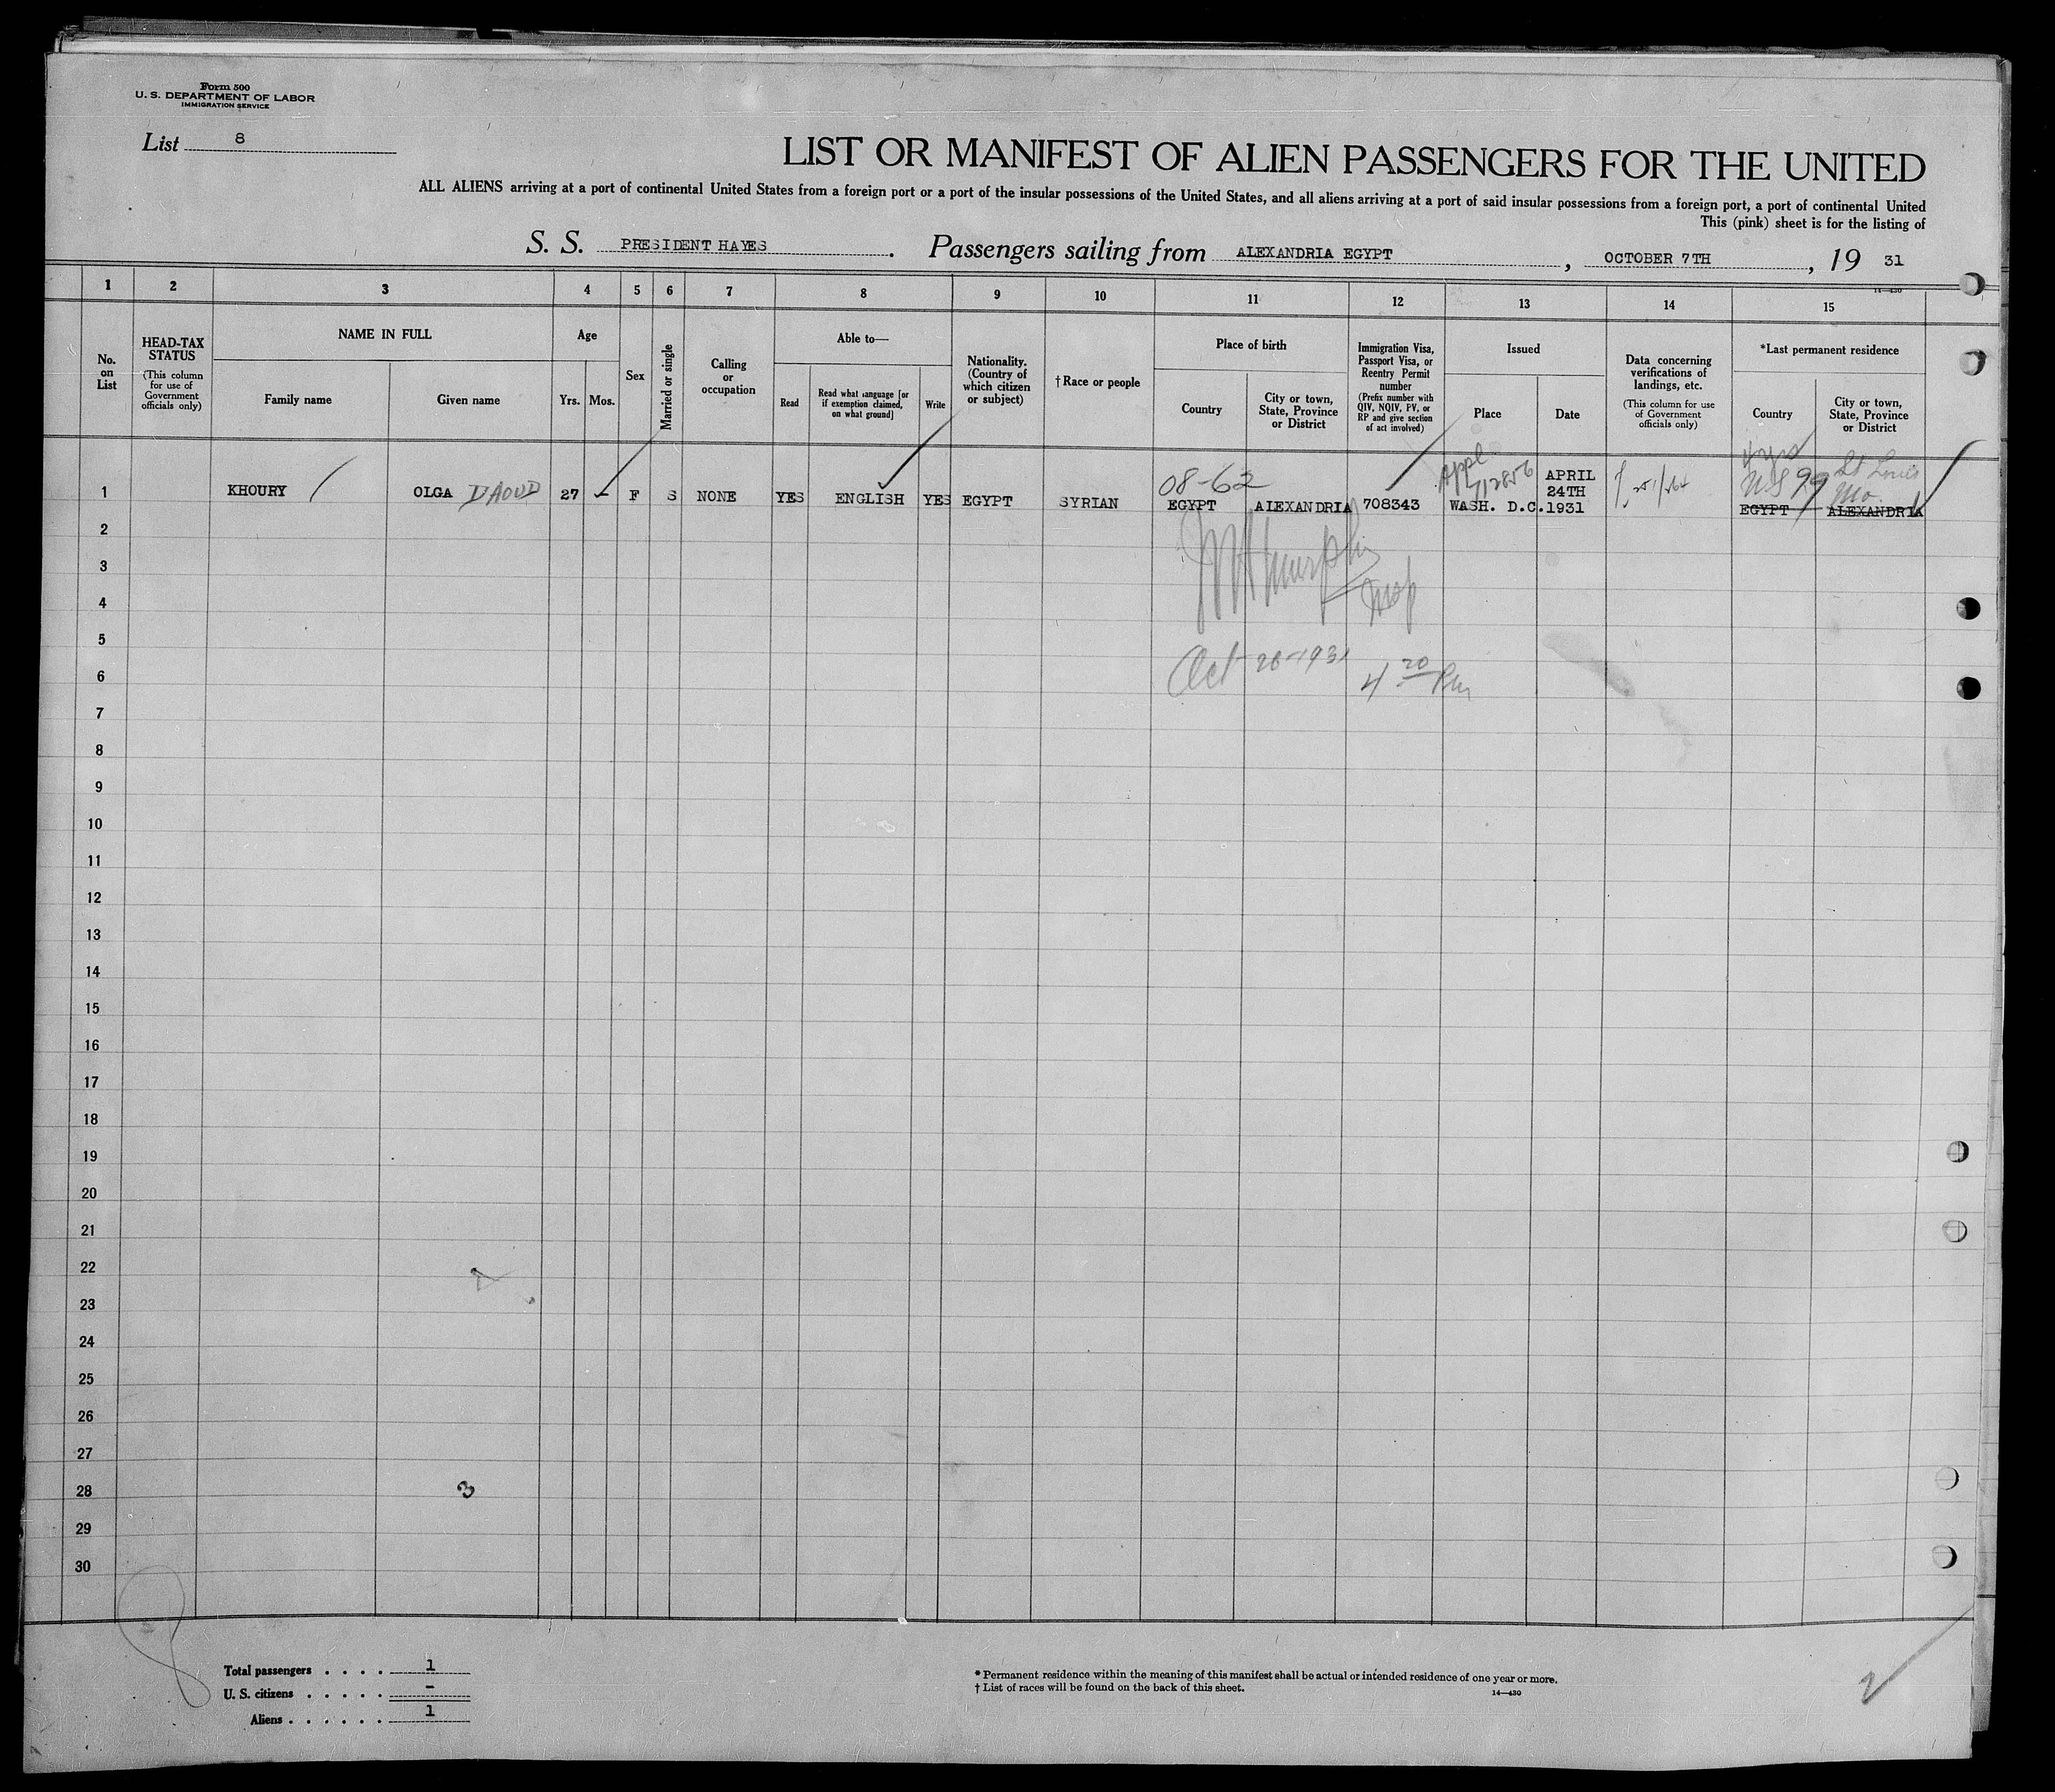 Form 500
U. S. DEPARTMENT OF LABOR
IMMIGRATION SERVICE
List 8
LIST OR MANIFEST OF ALIEN PASSENGERS FOR THE UNITED
ALL ALIENS arriving at a port of continental United States from a foreign port or a port of the insular possessions of the United States, and all aliens arriving at a port of said insular possessions from a foreign port, a port of continental United
This (pink) sheet is for the listing of
S. S. PRESIDENT HAYES. Passengers sailing from ALEXANDRIA EGYPT, OCTOBER 7TH, 19 31
14—430
1 2 3 4 5 6 7 8 9 10 11 12 13 14 15
No. on List
HEAD-TAX STATUS
(This column for use of Government officials only)
NAME IN FULL
Family name
Given name
Age
Yrs. Mos.
Sex
Married or single
Calling or occupation
Able to—
Read
Read what language [or if exemption claimed, on what ground]
Write
Nationality. (Country of which citizen or subject)
†Race or people
Place of birth
Country
City or town, State, Province or District
Immigration Visa, Passport Visa, or Reentry Permit number
(Prefix number with QIV, NQIV, PV, or RP and give section of act involved)
Issued
Place
Date
Data concerning verifications of landings, etc.
(This column for use of Government officials only)
*Last permanent residence
Country
City or town, State, Province or District
4 yrs
Appl. 712856
St Louis
08-62
U.S. 99 Mo.
1 KHOURY OLGA DAOUD 27 – F S NONE YES ENGLISH YES EGYPT SYRIAN EGYPT ALEXANDRIA 708343 WASH. D.C. APRIL 24TH 1931 EGYPT ALEXANDRIA
2
3
JM Murphy
4
5
Oct 26-1931 4 20 Pm
6
7
8
9
10
11
12
13
14
15
16
17
18
19
20
21
22
23
24
25
26
27
28
3
29
30
8
Total passengers . . . . 1
U. S. citizens . . . . . -
Aliens . . . . . . 1
* Permanent residence within the meaning of this manifest shall be actual or intended residence of one year or more.
† List of races will be found on the back of this sheet.
14—430
2